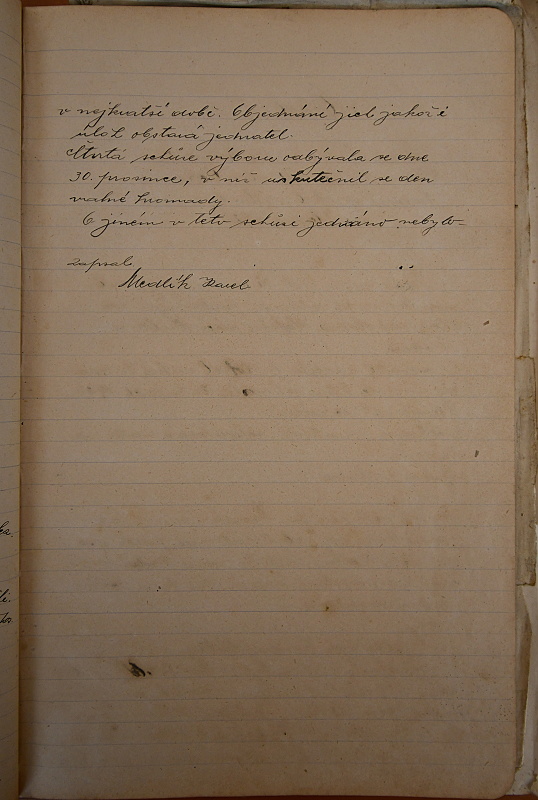 v nejkratší době. Objednání jich jakož i
úloh obstará jednatel.
Čtvrtá schůze výboru odbývala se dne
30. prosince, v níž uskutečnil se den
valné hromady.
O jiném v této schůzi jednáno nebylo-
zapsal
Medlík Karel